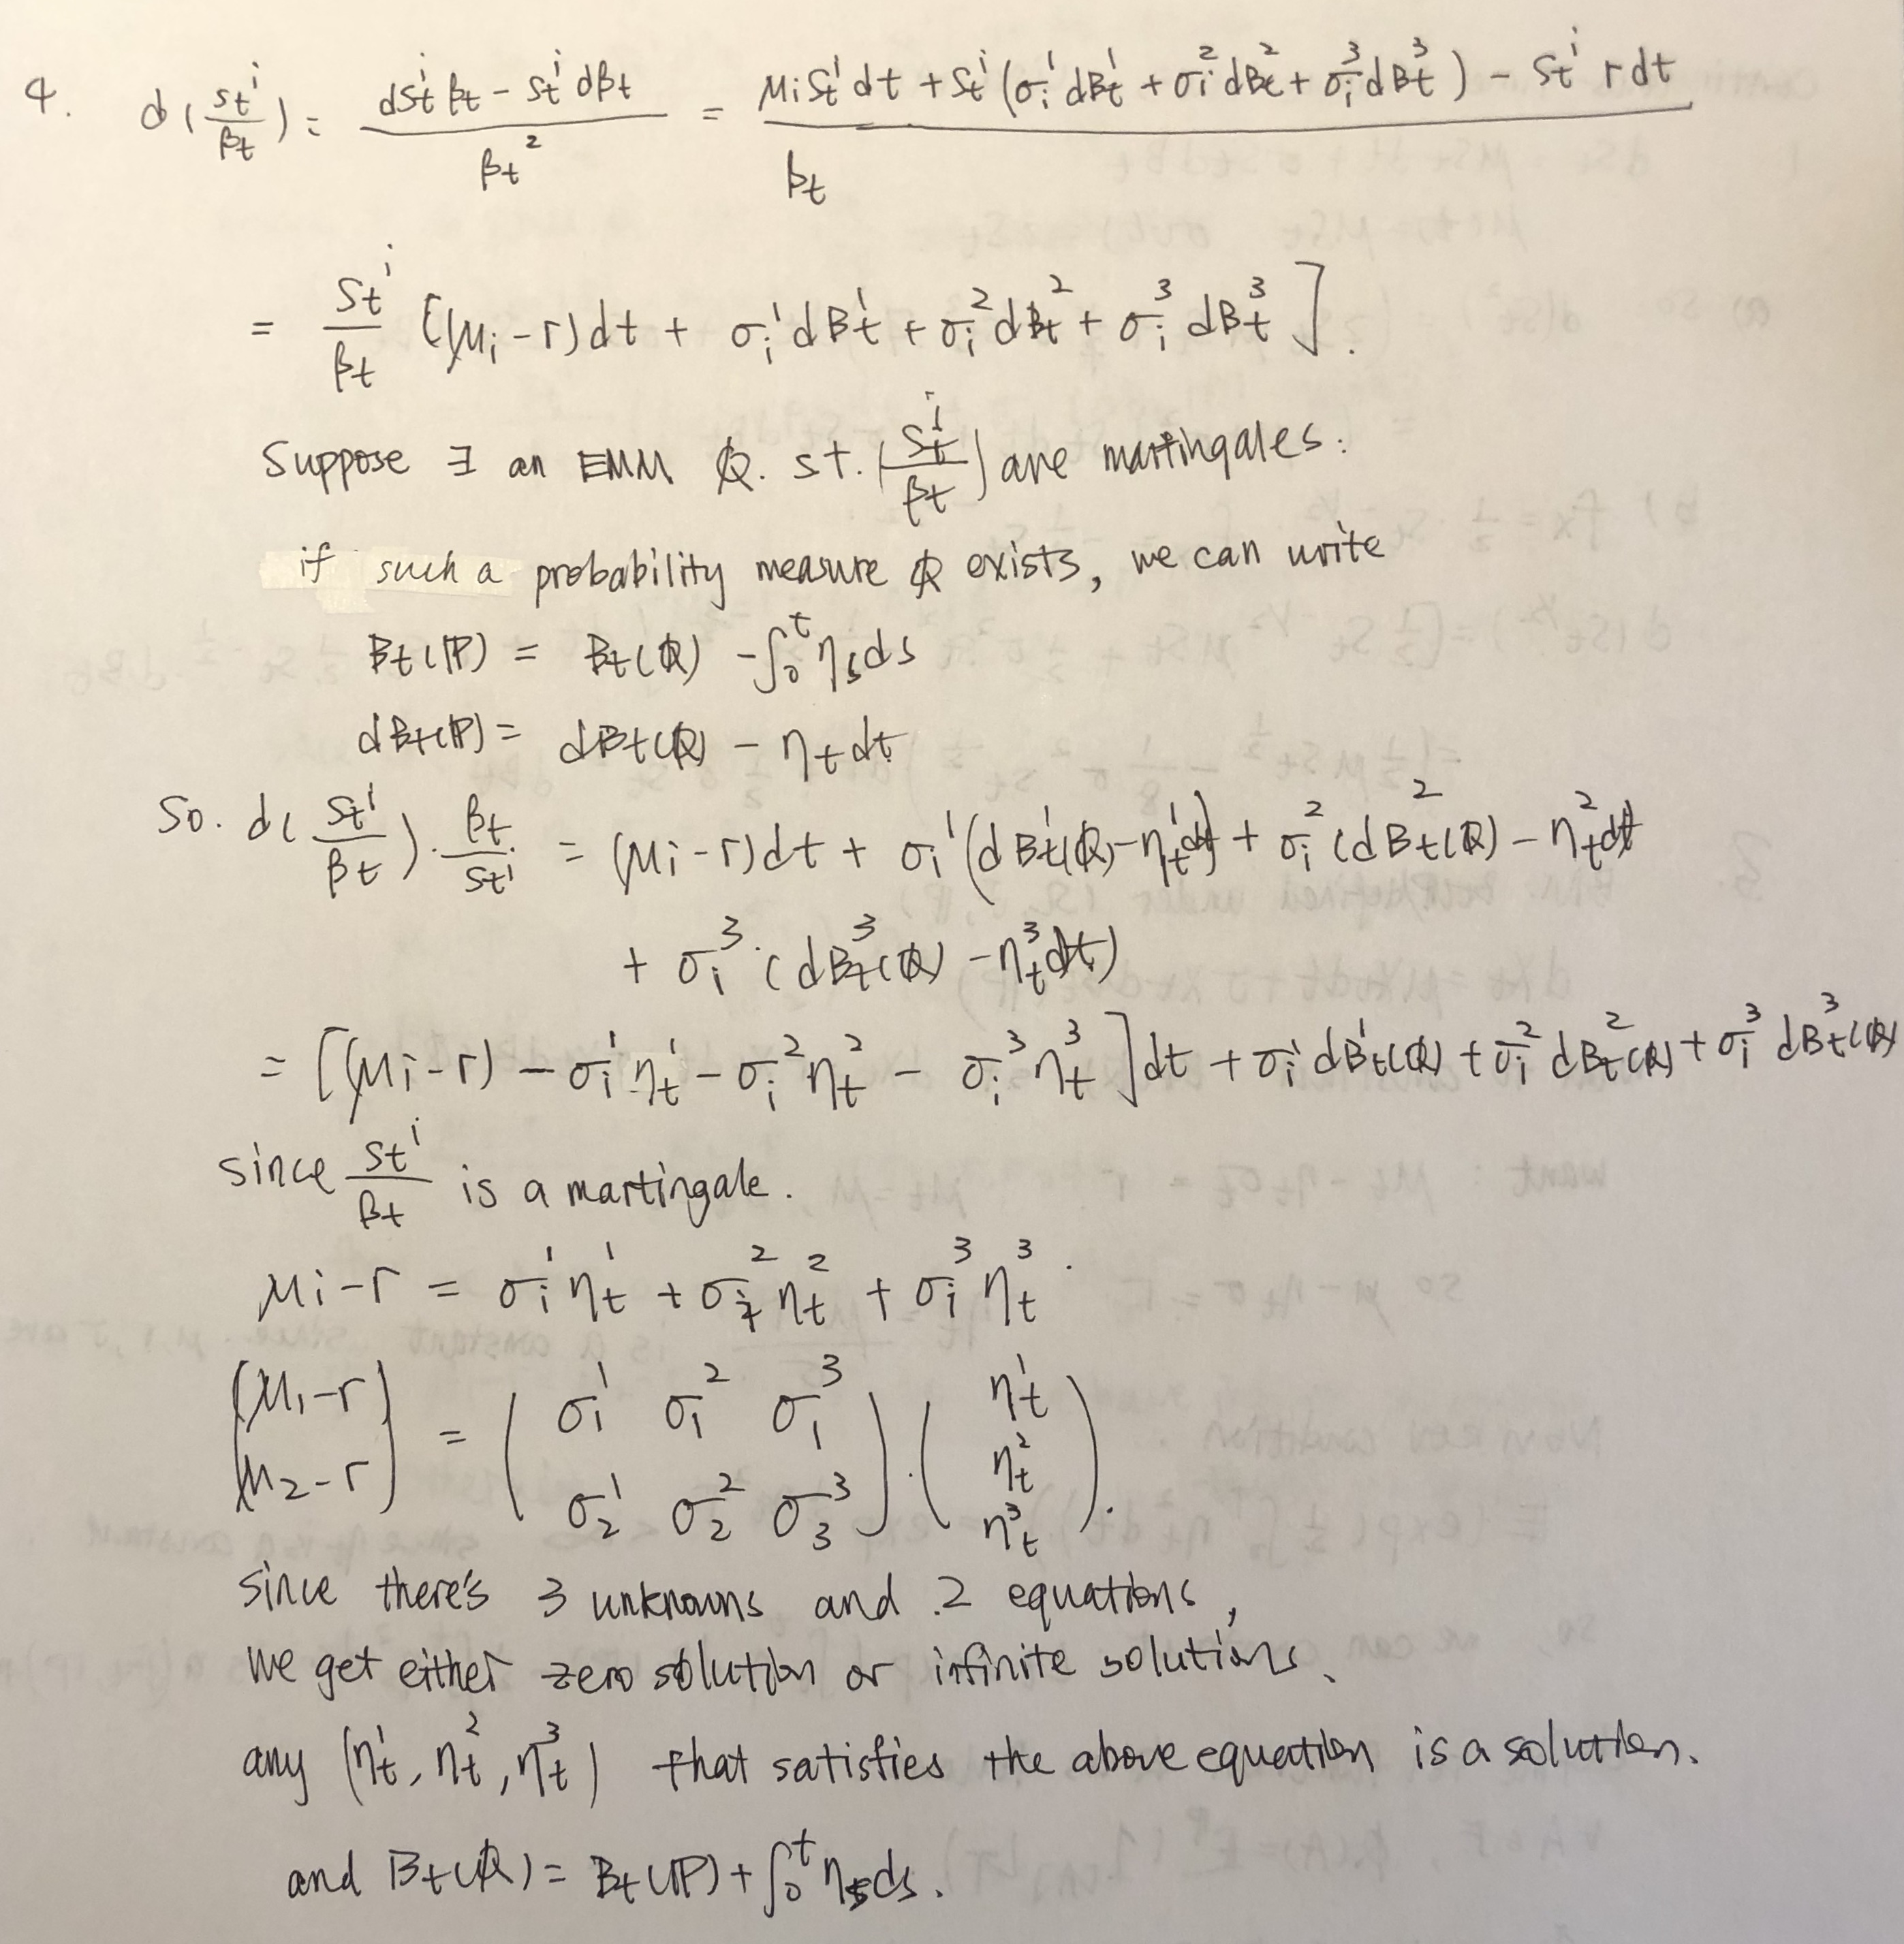 4. d(St^i/βt) = (dSt^i βt - St^i dβt)/βt^2 = (μi St^i dt + St^i (σi^1 dBt^1 + σi^2 dBt^2 + σi^3 dBt^3) - St^i r dt)/βt
= St^i/βt [(μi - r) dt + σi^1 dBt^1 + σi^2 dBt^2 + σi^3 dBt^3].
Suppose ∃ an EMM Q. st. (St^i/βt) are martingales:
if such a probability measure Q exists, we can write
Bt(P) = Bt(Q) - ∫0^t ηs ds
dBt(P) = dBt(Q) - ηt dt
So. d(St^i/βt) · βt/St^i = (μi - r) dt + σi^1 (dBt^1(Q) - ηt^1 dt) + σi^2 (dBt^2(Q) - ηt^2 dt)
+ σi^3 · (dBt^3(Q) - ηt^3 dt)
= [(μi - r) - σi^1 ηt^1 - σi^2 ηt^2 - σi^3 ηt^3] dt + σi^1 dBt^1(Q) + σi^2 dBt^2(Q) + σi^3 dBt^3(Q)
since St^i/βt is a martingale.
μi - r = σi^1 ηt^1 + σi^2 ηt^2 + σi^3 ηt^3.
(μ1 - r) = (σ1^1 σ1^2 σ1^3) · (ηt^1)
(μ2 - r) (σ2^1 σ2^2 σ3^3) (ηt^2)
(ηt^3).
since there's 3 unknowns and 2 equations,
we get either zero solution or infinite solutions.
any (ηt^1, ηt^2, ηt^3) that satisfies the above equation is a solution.
and Bt(Q) = Bt(P) + ∫0^t ηs ds.